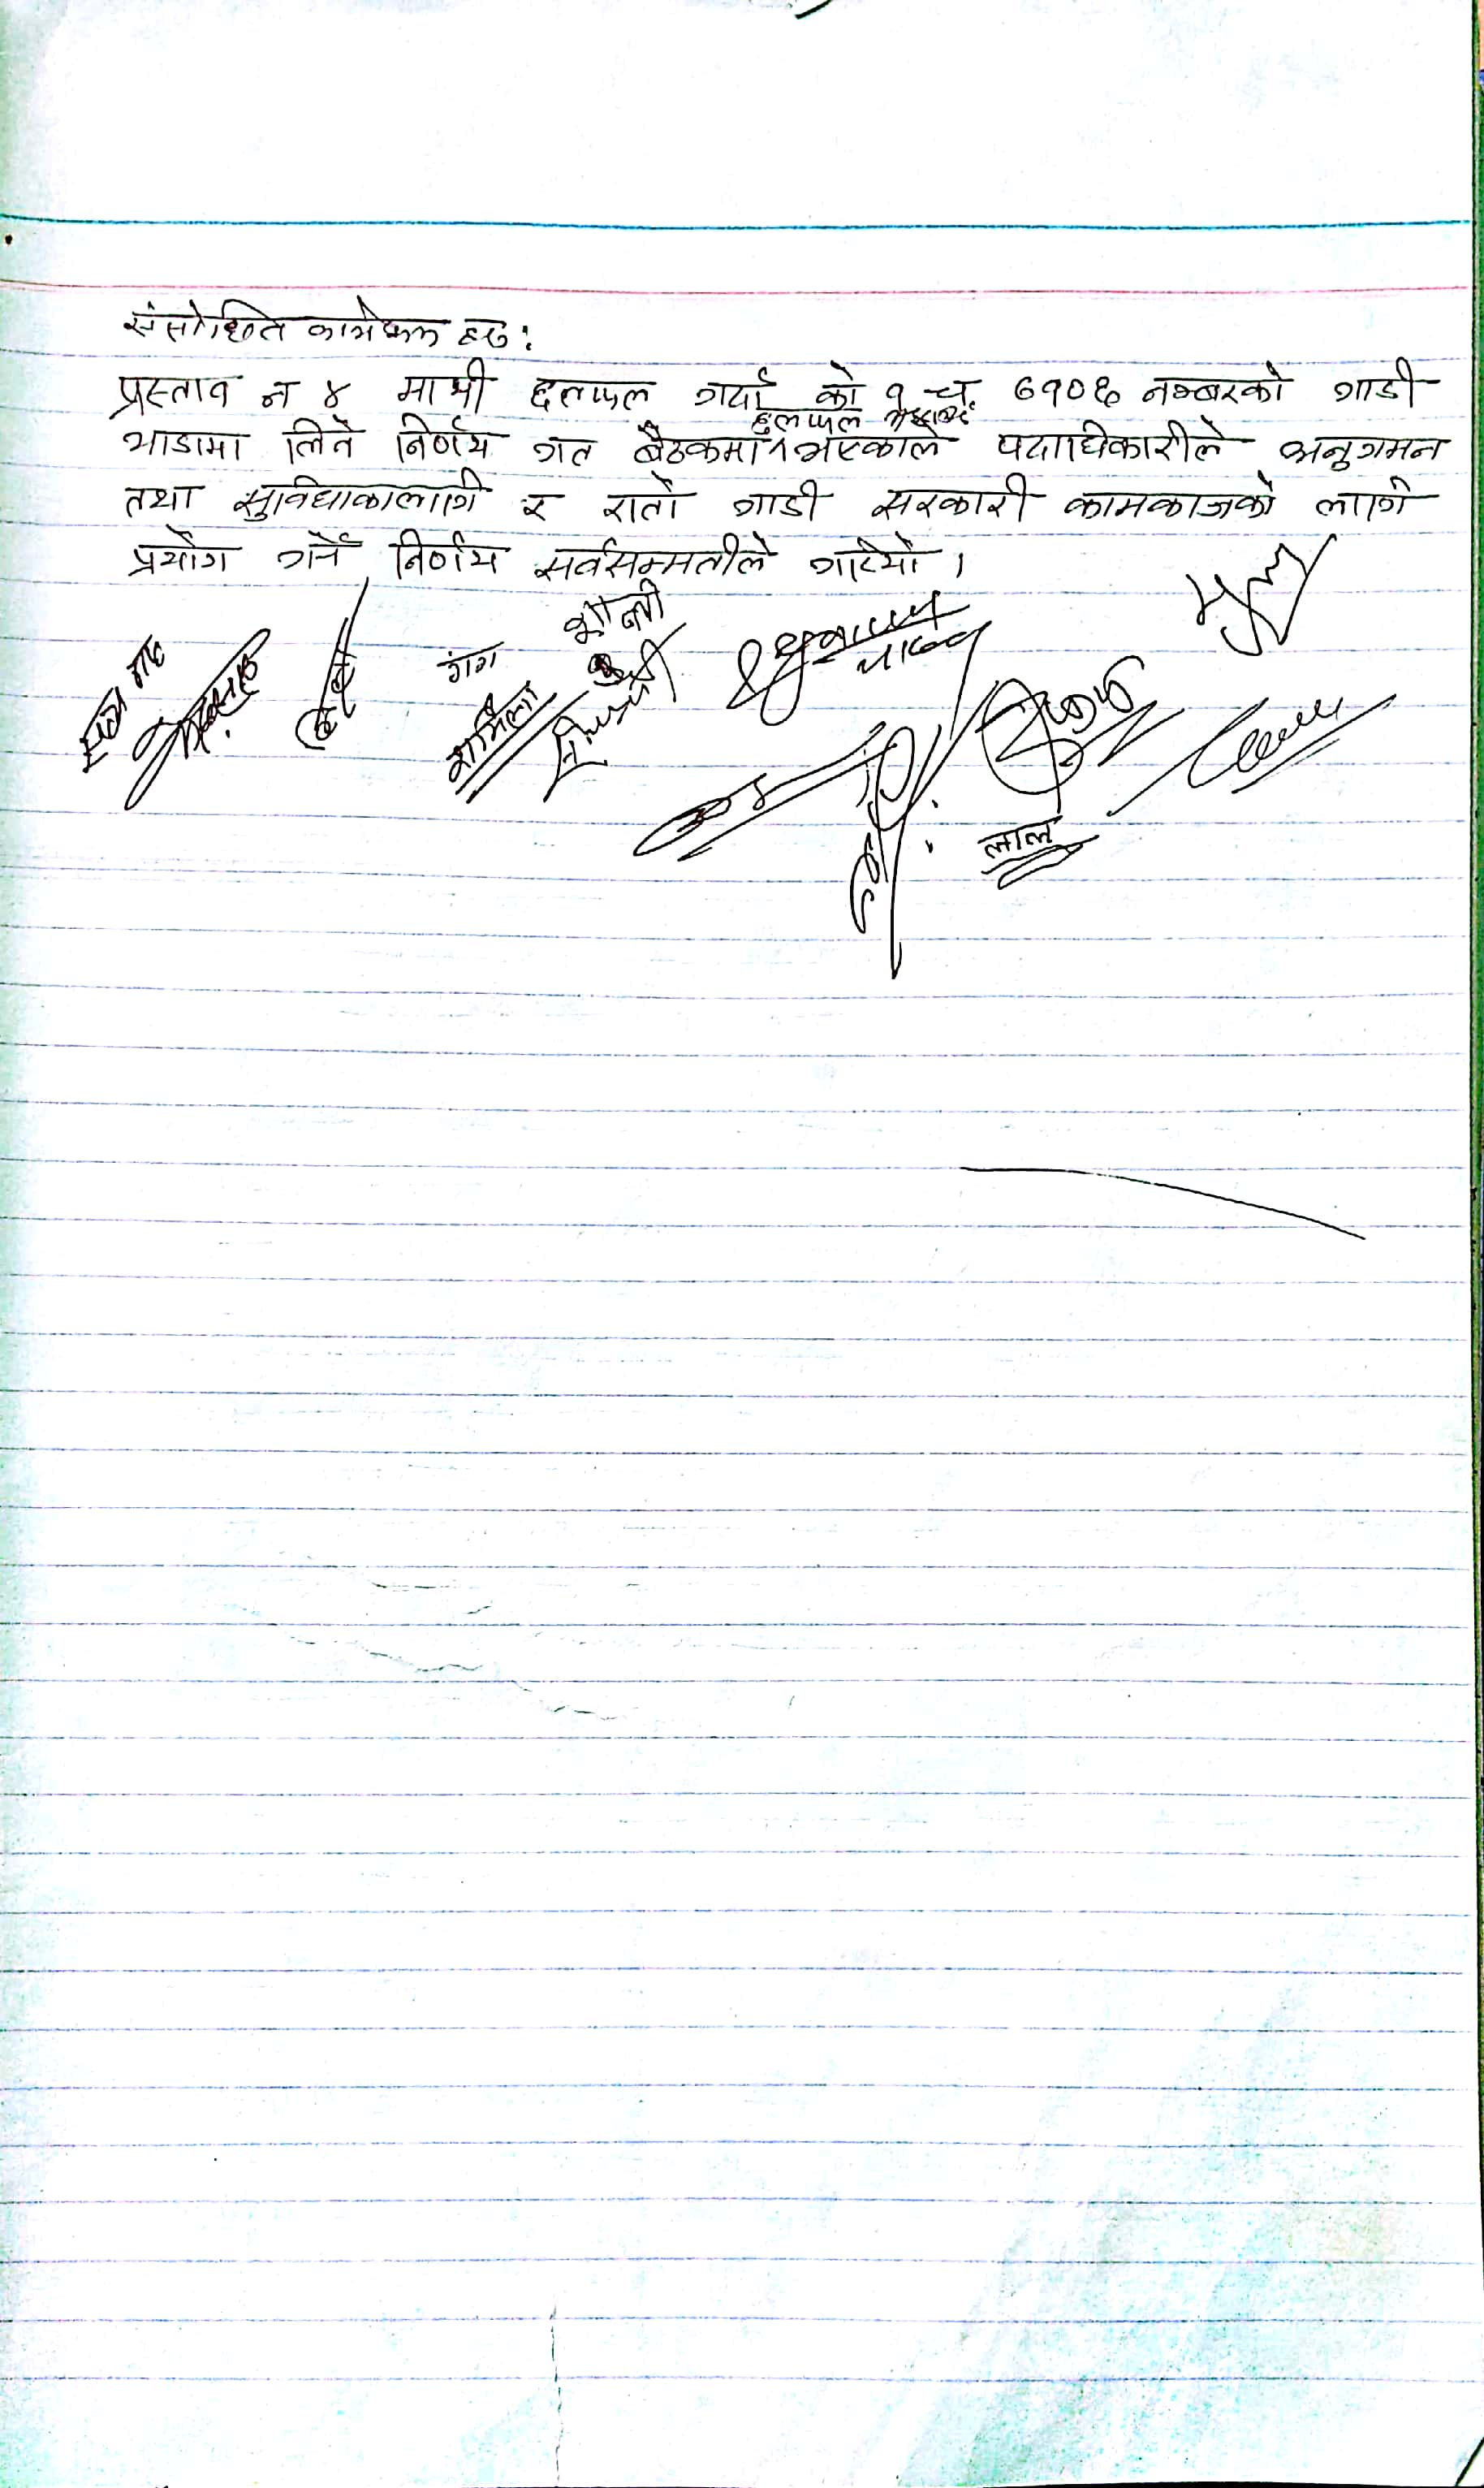 संसोधित कार्यक्रम हरु :
प्रस्ताव न ४ माथी छलफल गर्दा को १ च. ७१०६ नम्बरको गाडी
छलफल
भाडामा लिने निर्णय गत बैठकमा भएकाले पदाधिकारीले अनुगमन
तथा सुविधाकालागि र रातो गाडी सरकारी कामकाजको लागि
प्रयोग गर्ने निर्णय सर्वसम्मतीले गरियो ।
गंगा
शर्मिला
यादव
लाल